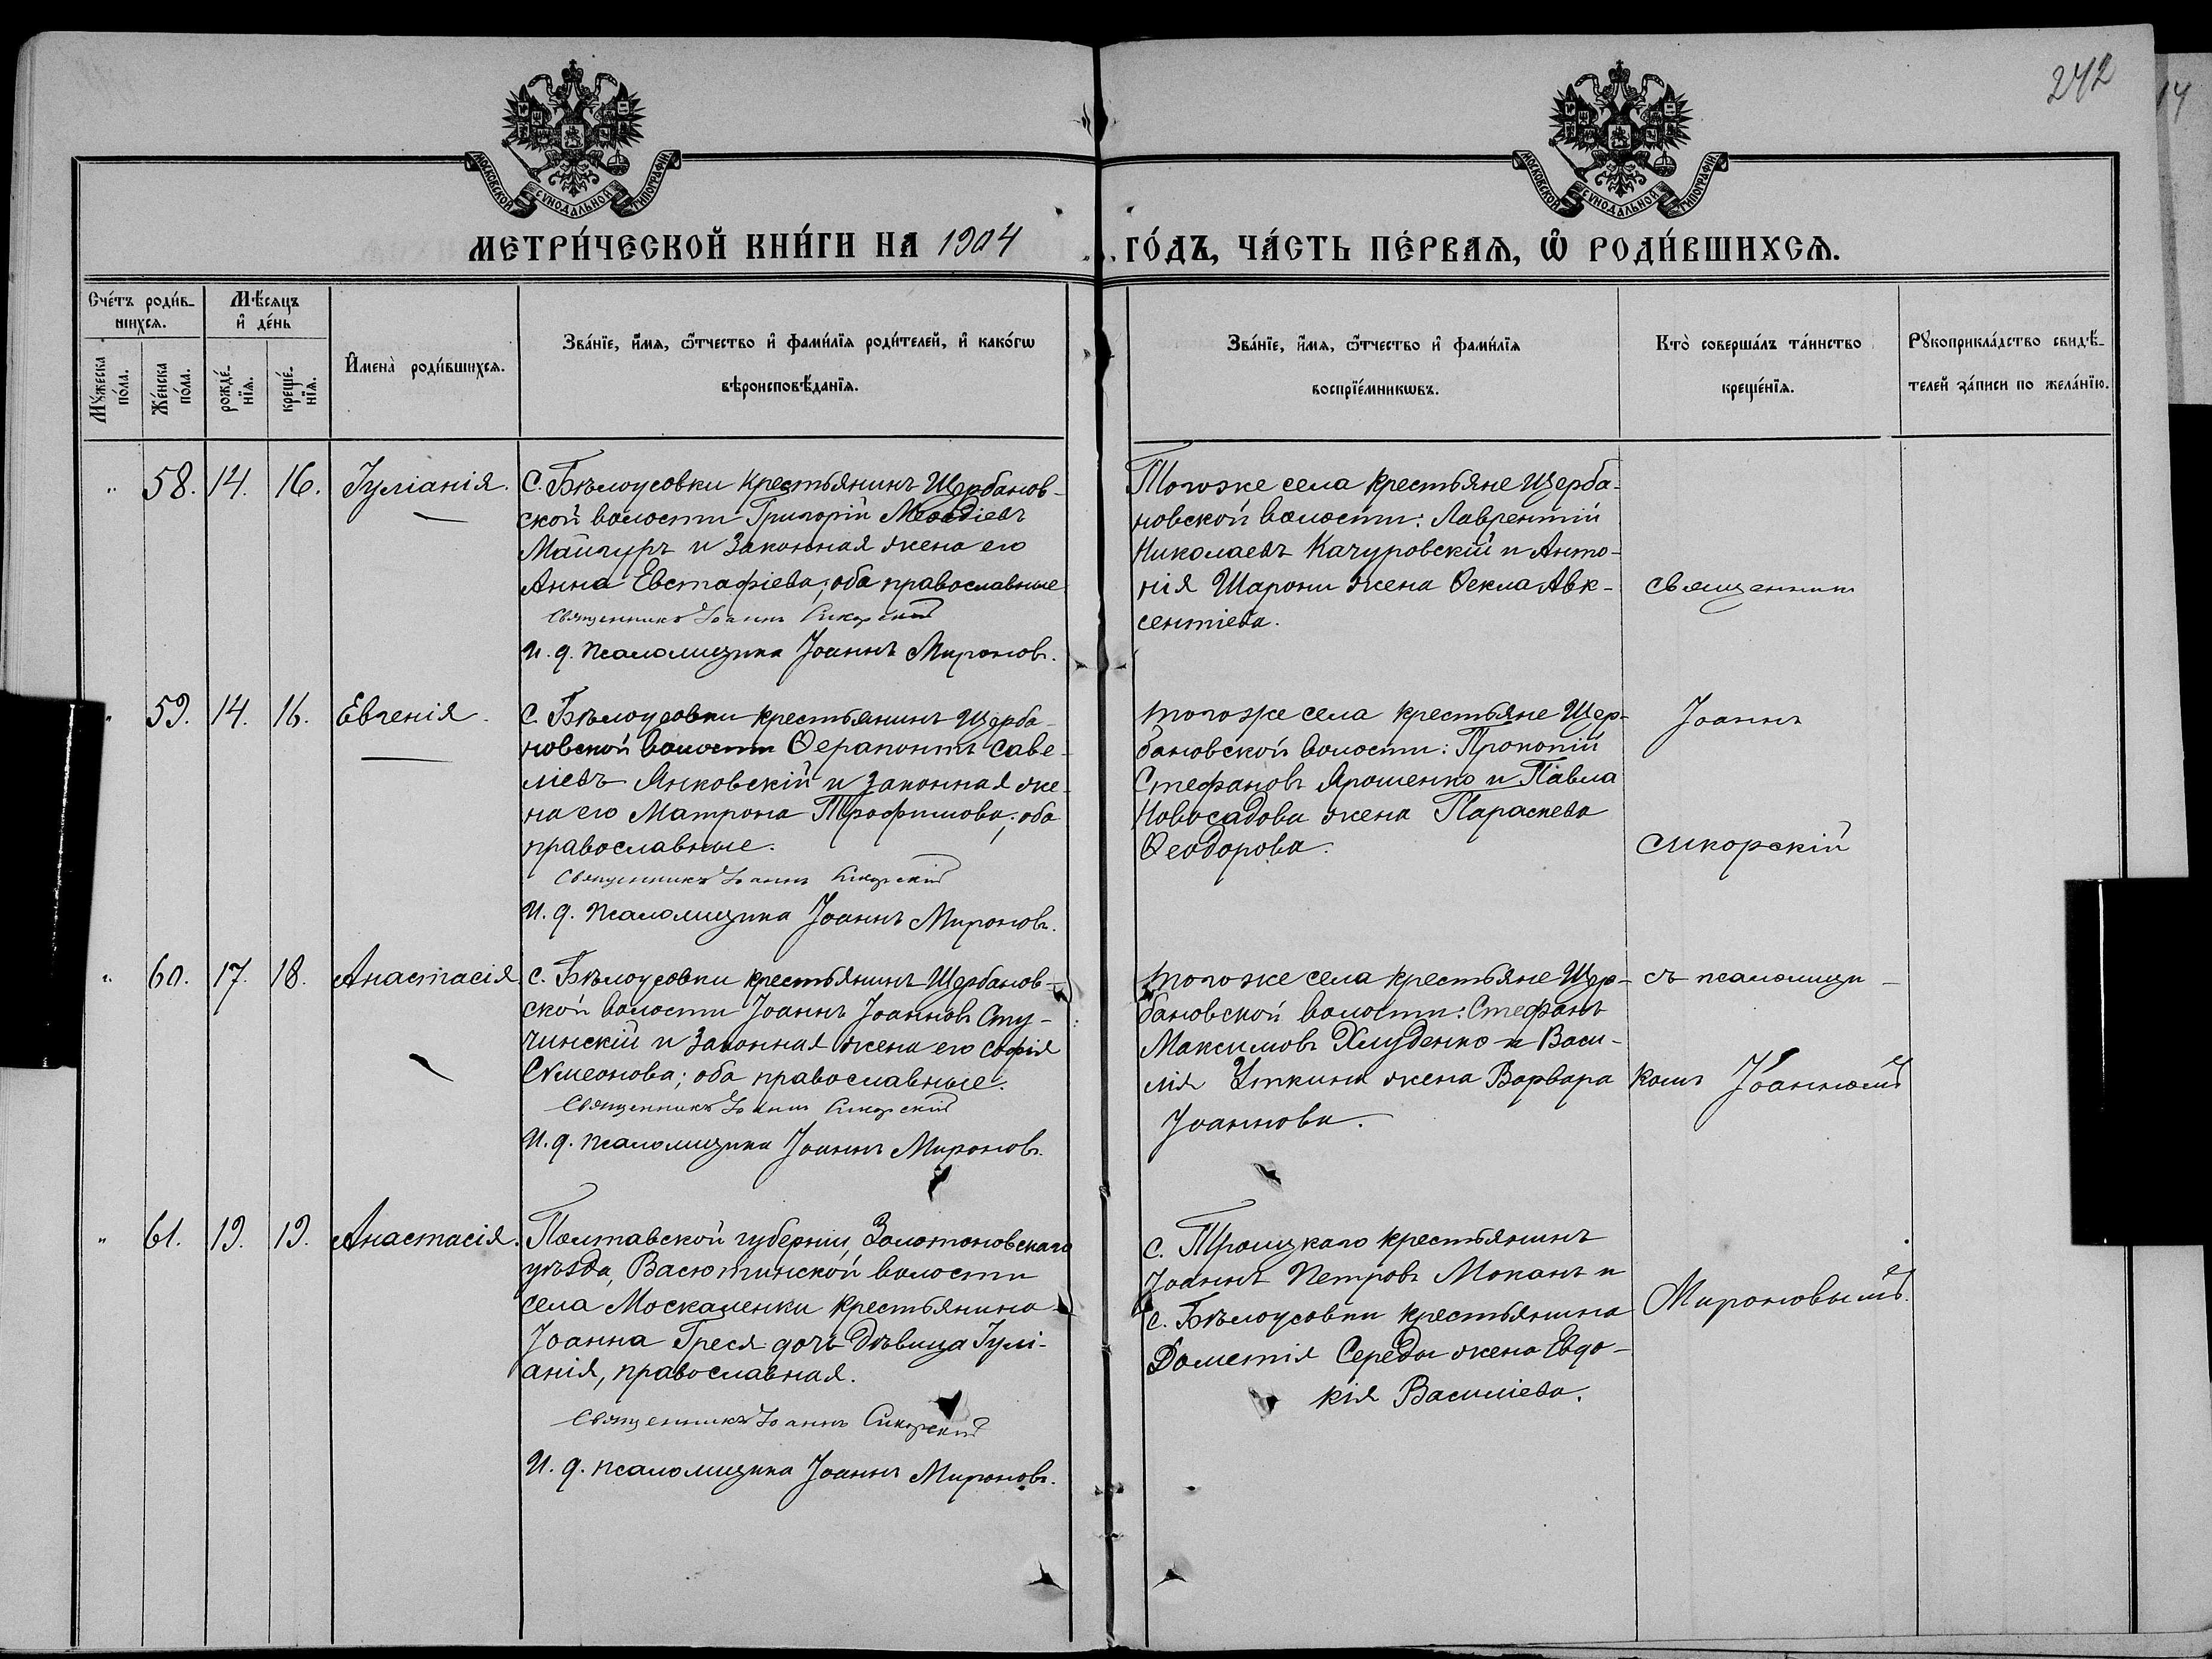 242
14
МОСКОВСКОЙ СѴНОДАЛЬНОЙ ТИПОГРАФІИ
МОСКОВСКОЙ СѴНОДАЛЬНОЙ ТИПОГРАФІИ
МЕТРИ́ЧЕСКОЙ КНИ́ГИ НА 1904 ГО́ДЪ, ЧА́СТЬ ПЕ́РВАѦ, Ѡ҆ РОДИ́ВШИХСѦ.
Сче́тъ роди́в-
шихсѧ.
Мꙋ́жеска по́ла.
Же́нска по́ла.
Мѣ́сѧцъ
и҆ де́нь
рожде́-
нїѧ.
креще́-
нїѧ.
И҆мена̀ роди́вшихсѧ.
Зва́нїе, и҆́мѧ, ѻ҆́тчество и҆ фами́лїѧ роди́телей, и҆ како́гѡ
вѣроисповѣ́данїѧ.
Зва́нїе, и҆́мѧ, ѻ҆́тчество и҆ фами́лїѧ
воспрїе́мникѡвъ.
Кто̀ соверша́лъ та́инство
креще́нїѧ.
Рꙋкоприкла́дство свидѣ́-
телей за́писи по жела́нїю.
" 58. 14. 16. Іуліанія.
С. Бѣлоусовки крестьянинъ Щербанов-
ской волости Григорій Меѳодіевъ
Майгуръ и законная жена его
Анна Евстафіева; оба православные
Священникъ Іоаннъ Сикорскій
И. д. псаломщика Іоаннъ Мироновъ.
Того же села крестьяне Щерба-
новской волости: Лаврентій
Николаевъ Качуровскій и Анто-
нія Шарони жена Ѳекла Авк-
сентіева.
священник
" 59. 14. 16. Евгенія.
С. Бѣлоусовки крестьянинъ Щерба-
новской волости Ѳерапонтъ Саве-
ліевъ Янковскій и законная же-
на его Матрона Трофимова; оба
православные.
Священникъ Іоаннъ Сикорскій
И. д. псаломщика Іоаннъ Мироновъ.
того же села крестьяне Щер-
бановской волости: Прокопій
Стефановъ Ярошенко и Павла
Новосадова жена Параскева
Ѳеодорова.
Іоаннъ
Сикорскій
" 60. 17. 18. Анастасія
С. Бѣлоусовки крестьянинъ Щербанов-
ской волости Іоаннъ Іоанновъ Сту-
чинскій и законная жена его Софія
Сѵмеонова; оба православные.
Священникъ Іоаннъ Сикорскій
И. д. псаломщика Іоаннъ Мироновъ.
того же села крестьяне Щер-
бановской волости: Стефанъ
Максимовъ Хлуденко и Васи-
лія Уткина жена Варвара
Іоаннова.
съ псаломщи-
комъ Іоанномъ
" 61. 19. 19. Анастасія.
Полтавской губерніи, Золотоновскаго
уѣзда, Васютинской волости
села Москаленки крестьянина
Іоанна Греся дочь дѣвица Іулі-
анія, православная.
Священникъ Іоаннъ Сикорскій
И. д. псаломщика Іоаннъ Мироновъ.
с. Троицкаго крестьянинъ
Іоаннъ Петровъ Моканъ и
с. Бѣлоусовки крестьянина
Дометія Середы жена Евдо-
кія Василіева.
Мироновымъ.